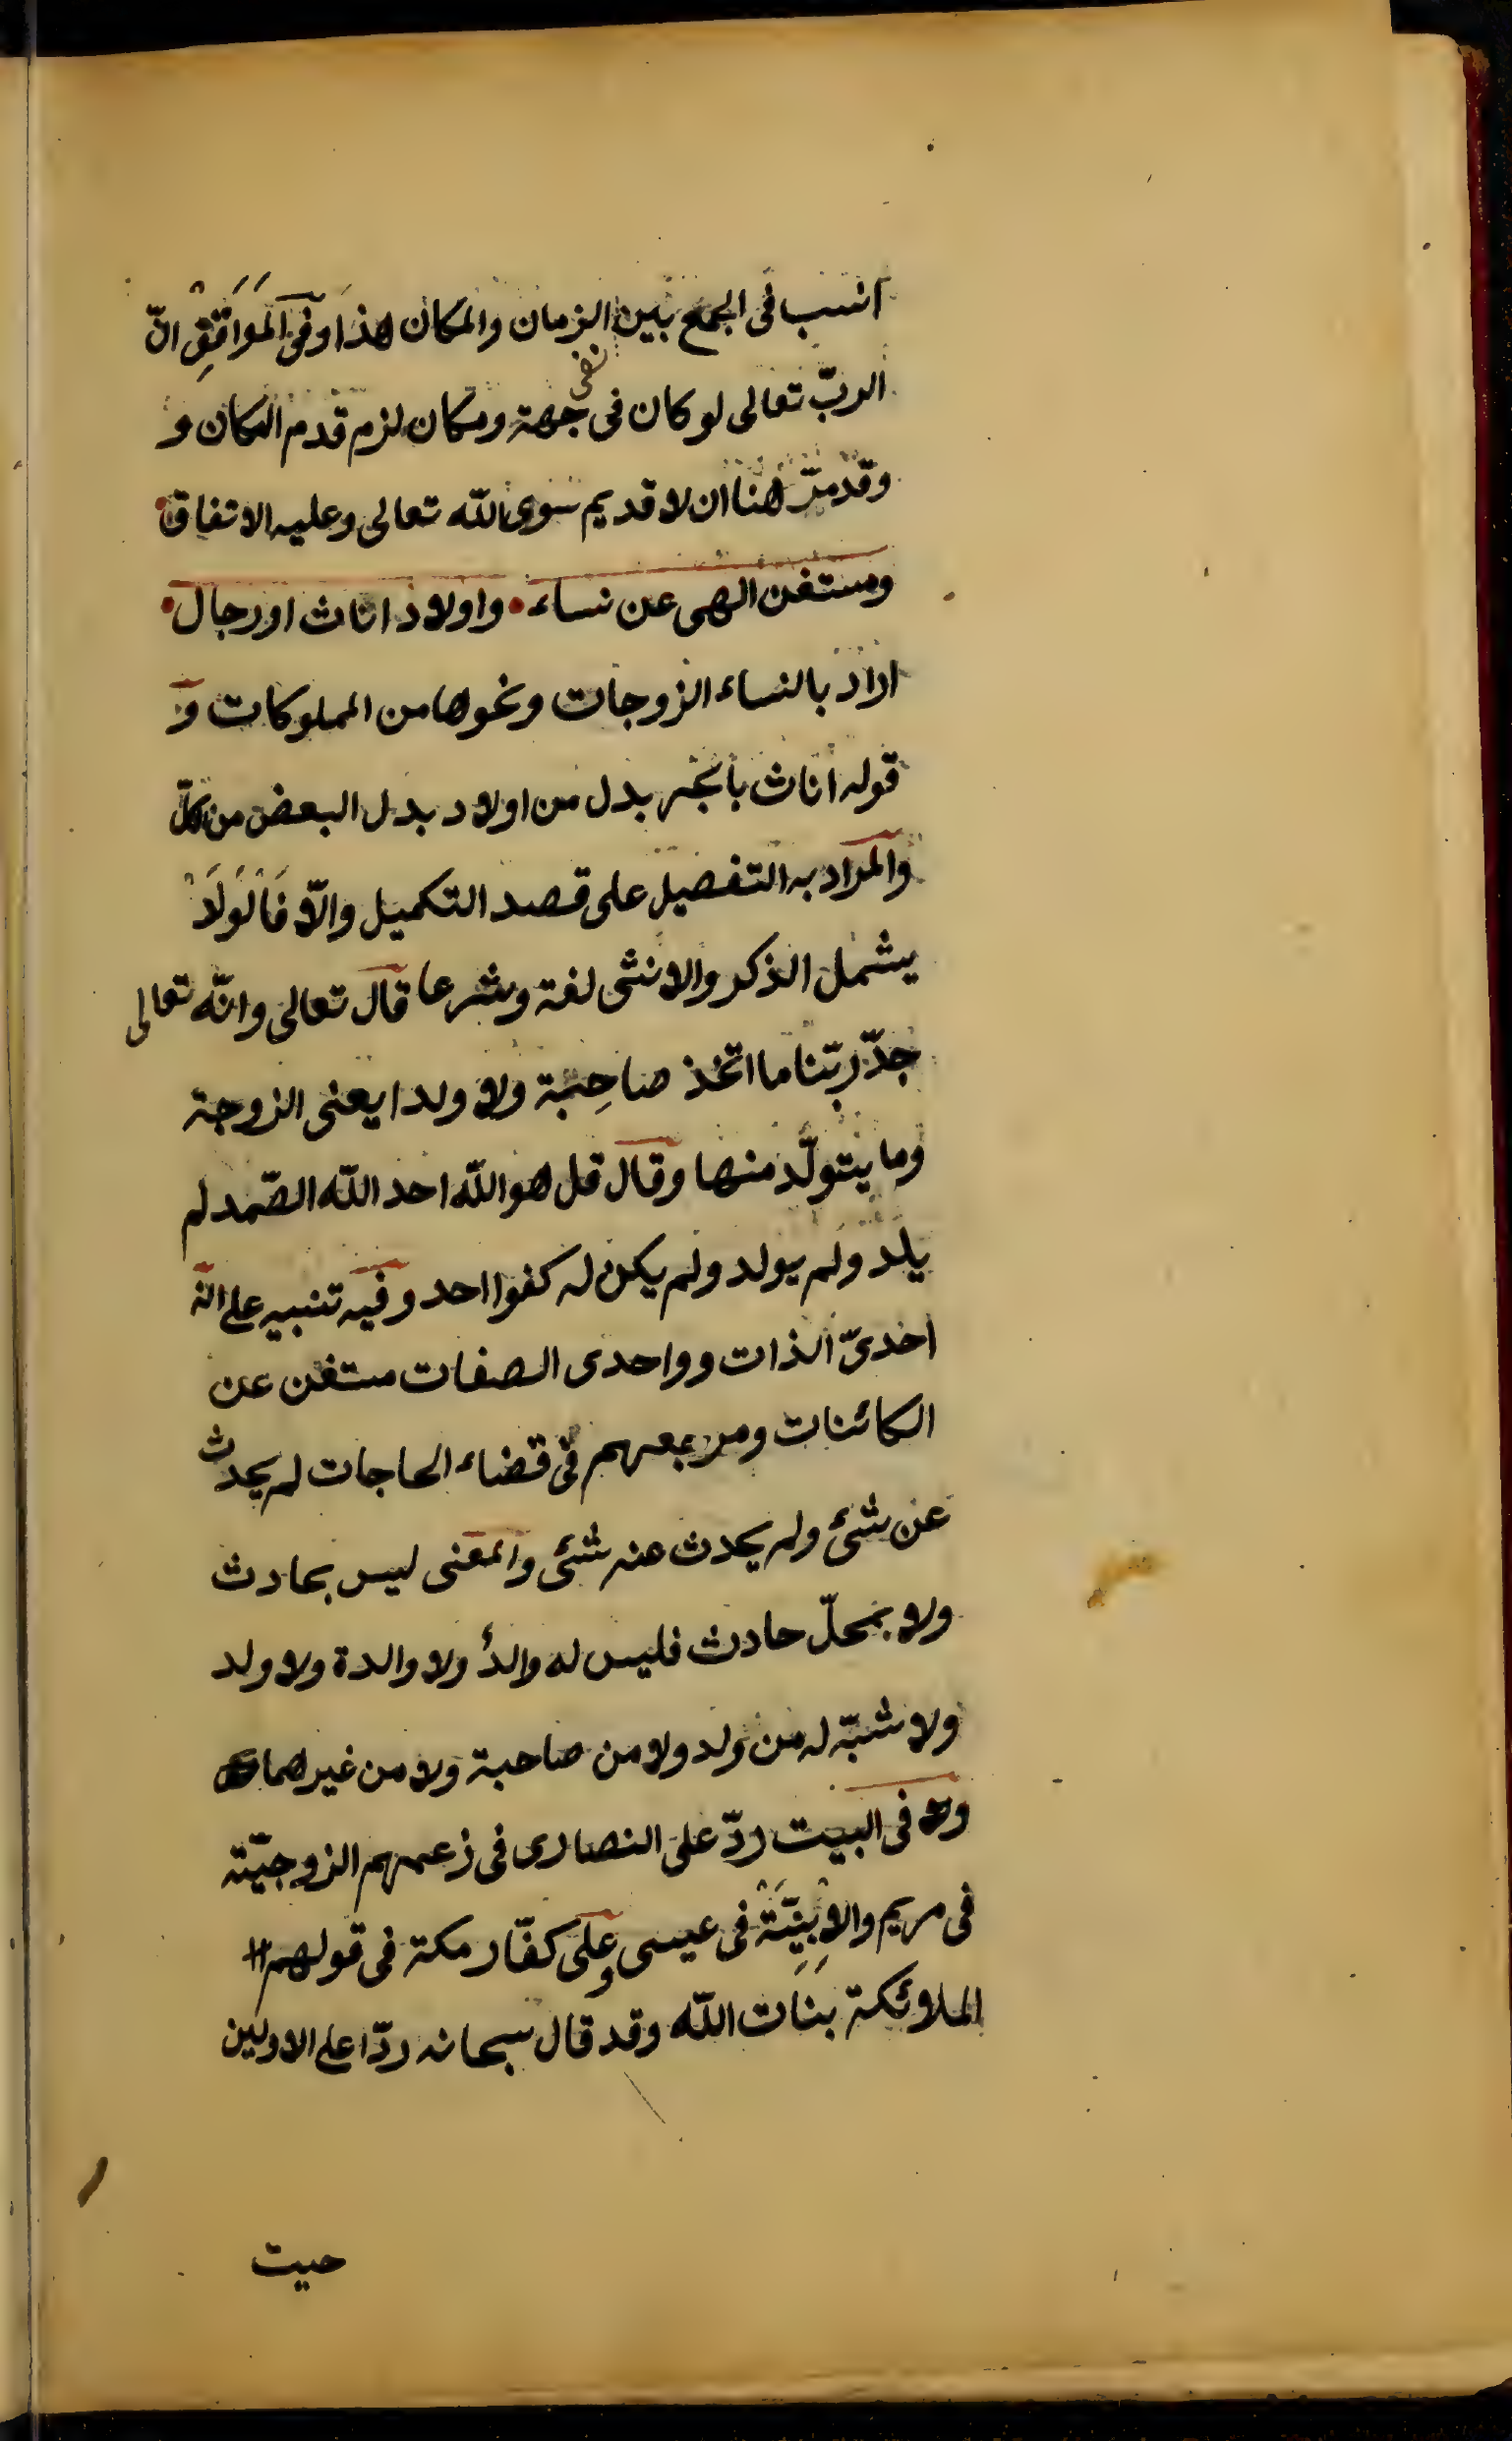 انسب فى الجمع بين الزمان والمكان هذا وفى المَوَاقِفْ انّ
الربّ تعالى لو كان فى جهة ومكان لزم قدم المكان و
نفى
وقد مرّ هنا ان لا قديم سوى الله تعالى وعليه الاتفاق
ومستغن الهى عن نساء • واولاد اناث او رجال •
اراد بالنساء الزوجات ونحوها من المملوكات و
قوله اناث بالجر بدل من اولاد بدل البعض من كلّ
والمراد به التفصيل على قصد التكميل والّا فَالْوَلَدْ
يشمل الذكر والانثى لغة وشرعا قال تعالى وانّه تعالى
جدّ ربّنا ما اتّخذ صاحِبة ولا ولدا يعنى الزوجة
وما يتولّد منها وقال قل هو الله احد الله الصّمد لم
يلد ولم يولد ولم يكن له كفوا احد وفيه تنبيه على انّه
احدىّ الذات وواحدى الصفات مستغن عن
الكائنات ومرجعهم فى قضاء الحاجات لم يحدث
عن شئ ولم يحدث عنه شئ والمعنى ليس بحادث
ولا بمحلّ حادث فليس له والدٌ ولا والدة ولا ولد
ولا شبّه له من ولد ولا من صاحبة ولا من غيرهما
فى البيت ردّ على النصارى فى زعمهم الزوجيّة
فى مريم والاِبْنِيَّةْ فى عيسى وعلى كفّار مكة فى قولهم
الملائكة بَنَات الله وقد قال سبحانه ردّا على الاولين
حيث